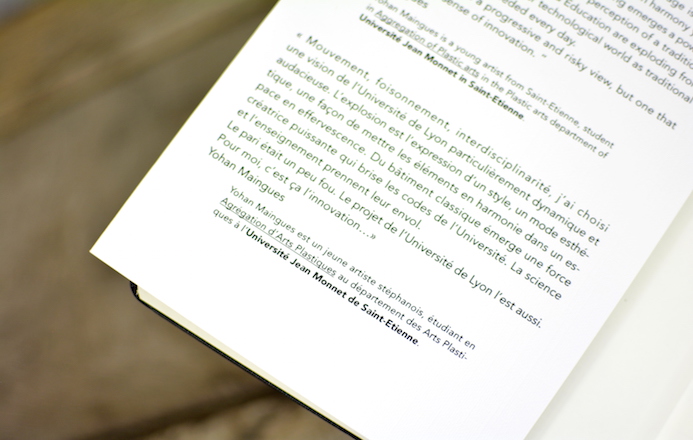 harmony
perception of a tradition
Education are exploding from
technological world as traditional
eeded every day.
a progressive and risky view, but one that
ense of innovation. "
Yohan Maingues is a young artist from Saint-Etienne, student
in Aggregation of Plastic arts in the Plastic arts department of
Université Jean Monnet in Saint-Etienne.
« Mouvement, foisonnement, interdisciplinarité, j'ai choisi
une vision de l'Université de Lyon particulièrement dynamique et
audacieuse. L'explosion est l'expression d'un style, un mode esthé-
tique, une façon de mettre les éléments en harmonie dans un es-
pace en effervescence. Du bâtiment classique émerge une force
créatrice puissante qui brise les codes de l'Université. La science
et l'enseignement prennent leur envol.
Le pari était un peu fou. Le projet de l'Université de Lyon l'est aussi.
Pour moi, c'est ça l'innovation...»
Yohan Maingues
Yohan Maingues est un jeune artiste stéphanois, étudiant en
Agrégation d'Arts Plastiques au département des Arts Plasti-
ques à l'Université Jean Monnet de Saint-Etienne.